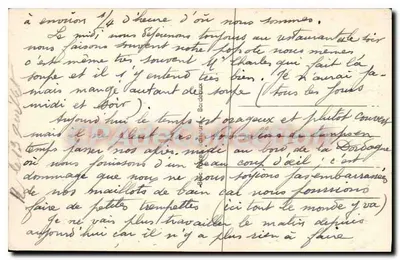 à environ 1/4 d'heure d'où nous sommes.
Le midi nous déjeunons toujours au restaurant, le soir
nous faisons souvent notre popote nous mêmes
c'est même très souvent Mr Charles qui fait la
soupe et il s'y entend très bien. Je n'aurai ja-
mais mangé autant de soupe (tous les jours
midi et soir)
Aujourd'hui le temps est orageux et plutôt couvert
mais
temps passer nos après midi au bord de la Dordogne
où nous jouissons d'un beau coup d'œil, c'est
dommage que nous ne nous soyions pas embarrassés
de nos maillots de bain car nous pourrions
faire de petites trempettes (ici tout le monde y va)
Je ne vais plus travailler le matin depuis
aujourd'hui car il n'y a plus rien à faire